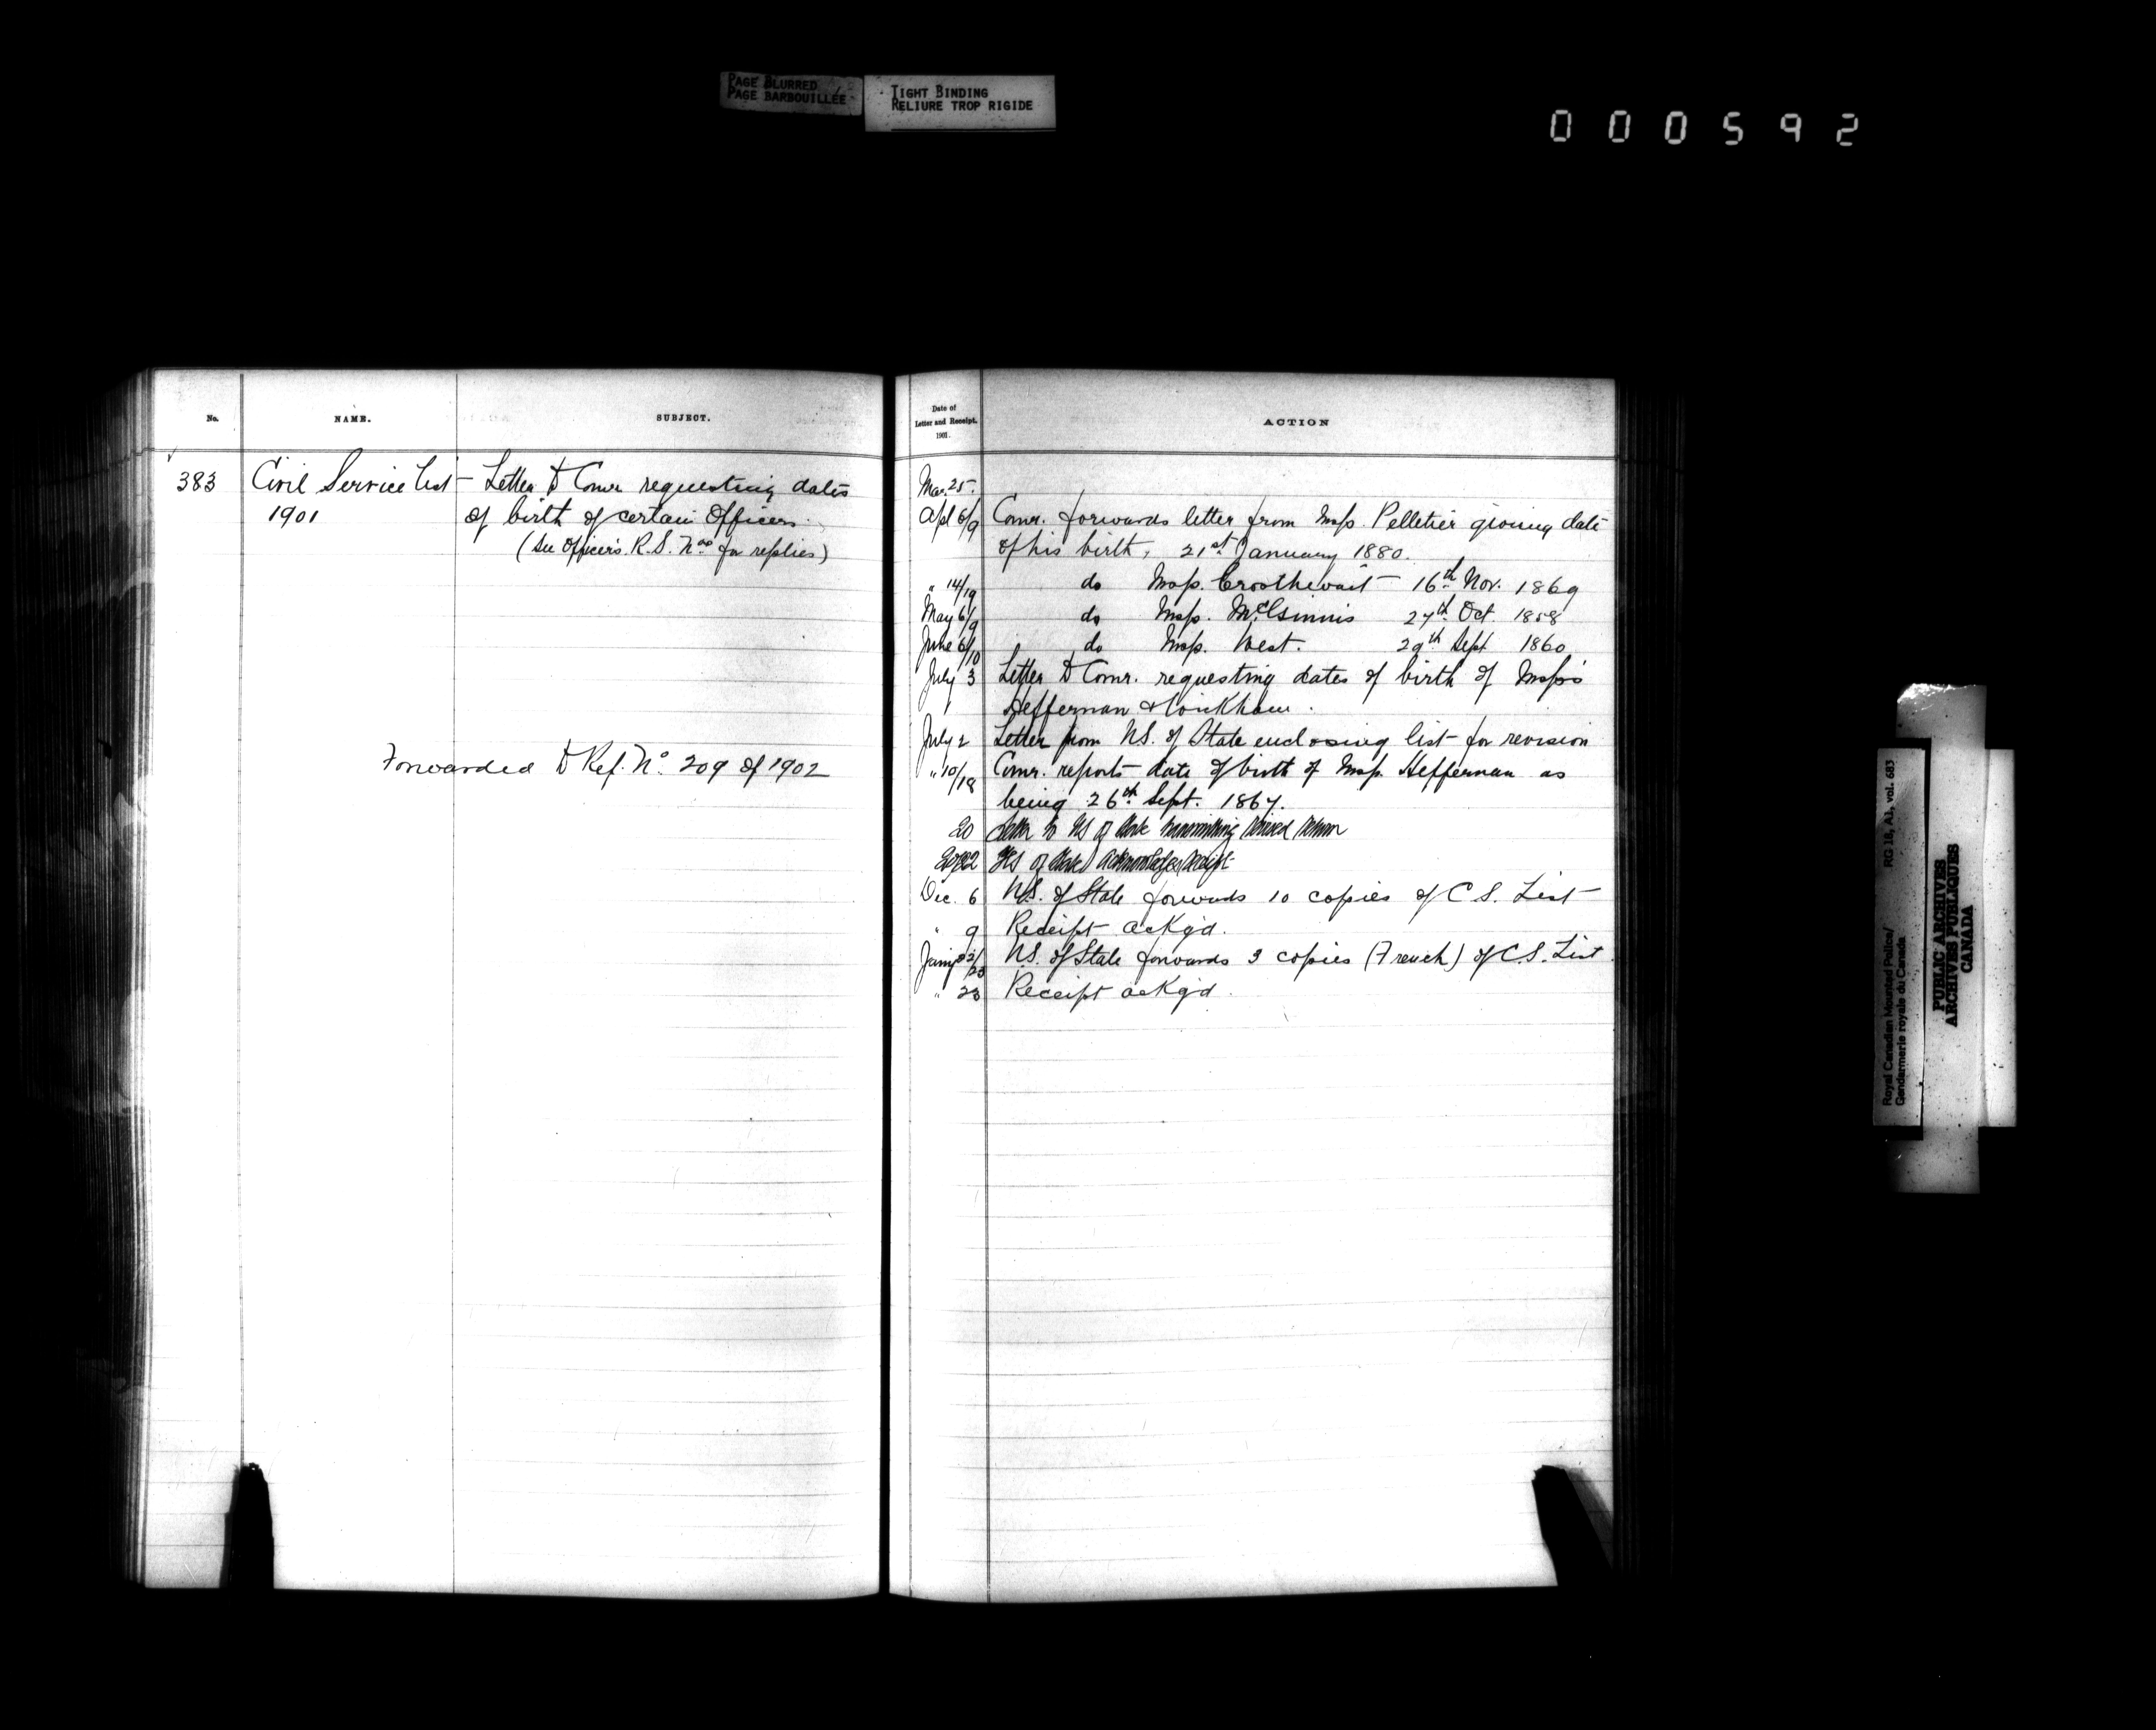 PAGE BLURRED
PAGE BARBOUILLÉE
TIGHT BINDING
RELIURE TROP RIGIDE
000592
No.
NAME.
SUBJECT.
383
Civil Service List
1901
Letter to Comr requesting dates
of birth of certain Officers.
(See Officers R.S. Nos for replies)
Forwarded to Ref. No. 209 of 1902
Date of
Letter and Receipt.
1901.
ACTION
Mar. 25.
Apl 6/9 Comr. forwards letter from Insp. Pelletier giving date
of his birth, 21st January 1880.
" 14/19 do Insp. Crosthwait 16th Nov. 1869
May 6/9 do Insp. McGinnis 27th Oct. 1858
June 6/10 do Insp. West. 29th Sept 1860
July 3 Letter to Comr. requesting dates of birth of Insps
Heffernan &
July 2 Letter from U.S. of State enclosing list for revision
" 10/18 Comr. reports date of birth of Insp. Heffernan as
being 26th Sept. 1867.
20 Letter to US of State transmitting revised return
20/22 US of State acknowledges receipt
Dec. 6 U.S. of State forwards 10 copies of C S. List
" 9 Receipt ackg'd.
Jany 22/23 U.S. of State forwards 3 copies (French) of C.S. List.
" 23 Receipt ackg'd.
Royal Canadian Mounted Police/
Gendarmerie royale du Canada
RG 18, A1, vol. 683
PUBLIC ARCHIVES
ARCHIVES PUBLIQUES
CANADA